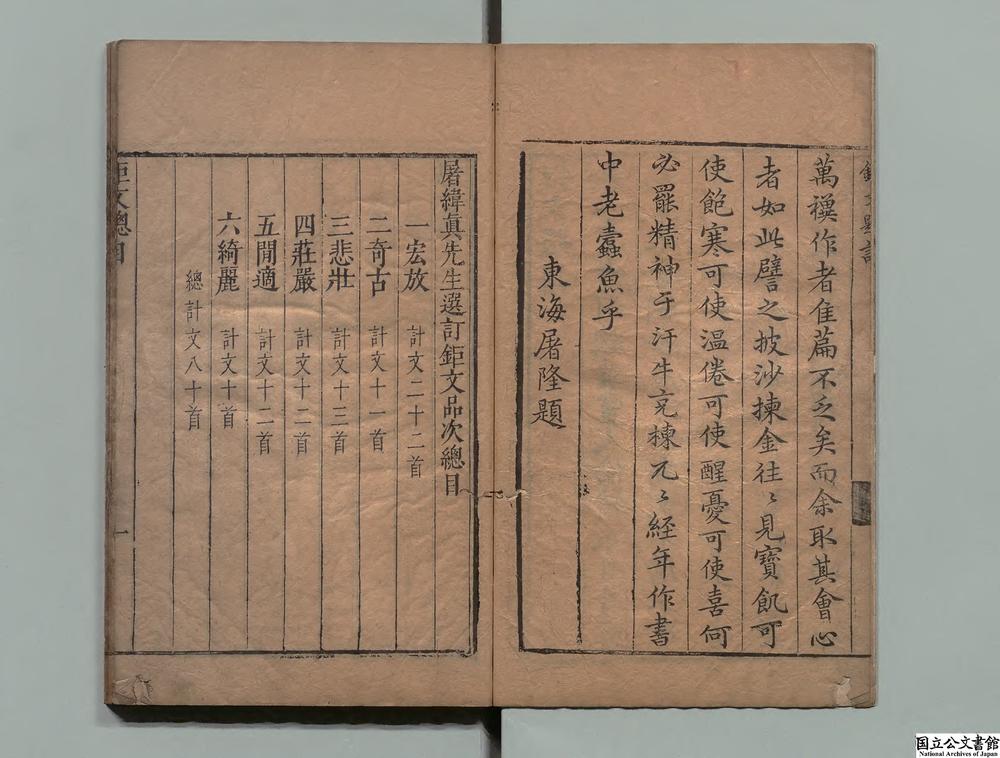 萬禩作者隹篇不乏矣而余取其會心
者如此譬之披沙揀金往〻見寶飢可
使飽寒可使溫倦可使醒憂可使喜何
必罷精神于汗牛充棟兀〻経年作書
中老蠹魚乎
東海屠隆題
屠緯眞先生選訂鉅文品次總目
一宏放 計文二十二首
二奇古 計文十一首
三悲壯 計文十三首
四莊嚴 計文十二首
五閒適 計文十二首
六綺麗 計文十首
總計文八十首
鉅文總目
一
国立公文書館
National Archives of Japan